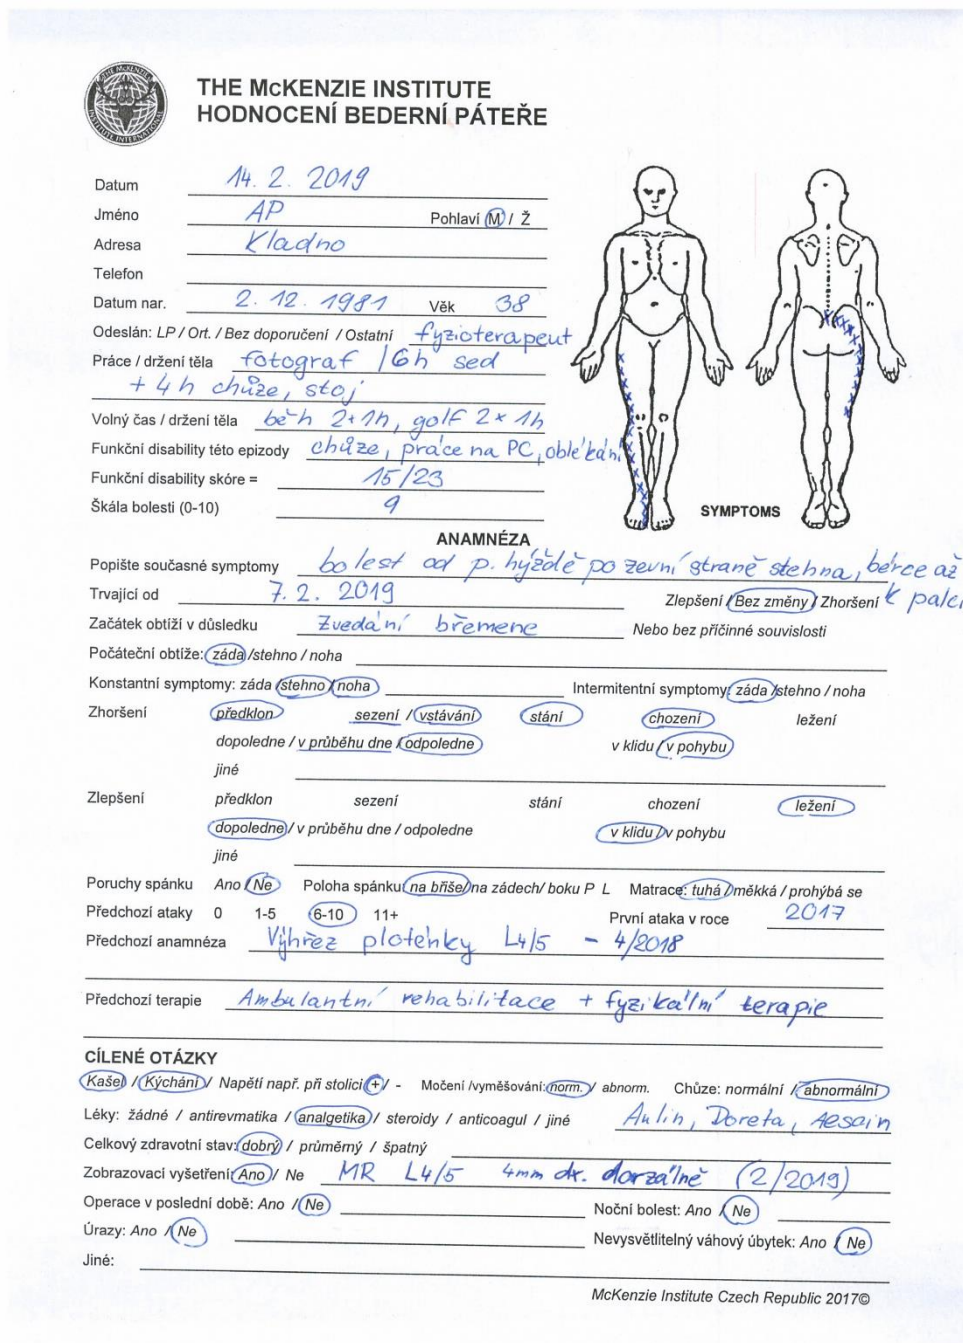 THE McKENZIE INSTITUTE
HODNOCENÍ BEDERNÍ PÁTEŘE
Datum 14. 2. 2019
Jméno AP Pohlaví M / Ž
Adresa Kladno
Telefon
Datum nar. 2. 12. 1981 Věk 38
Odeslán: LP / Ort. / Bez doporučení / Ostatní fyzioterapeut
Práce / držení těla fotograf / 6h sed
+ 4h chůze, stoj
Volný čas / držení těla běh 2+1h, golf 2×1h
Funkční disability této epizody chůze, práce na PC, oblékání
Funkční disability skóre = 15/23
Škála bolesti (0-10) 9
SYMPTOMS
ANAMNÉZA
Popište současné symptomy bolest od p. hýždě po zevní straně stehna, bérce až
k palci
Trvající od 7. 2. 2019 Zlepšení / Bez změny / Zhoršení
Začátek obtíží v důsledku Zvedání břemene Nebo bez příčinné souvislosti
Počáteční obtíže: záda /stehno / noha
Konstantní symptomy: záda /stehno / noha Intermitentní symptomy: záda /stehno / noha
Zhoršení předklon sezení / vstávání stání chození ležení
dopoledne / v průběhu dne / odpoledne v klidu / v pohybu
jiné
Zlepšení předklon sezení stání chození ležení
dopoledne / v průběhu dne / odpoledne v klidu / v pohybu
jiné
Poruchy spánku Ano / Ne Poloha spánku: na břiše/na zádech/ boku P L Matrace: tuhá /měkká / prohýbá se
Předchozí ataky 0 1-5 6-10 11+ První ataka v roce 2017
Předchozí anamnéza Výhřez ploténky L4/5 - 4/2018
Předchozí terapie Ambulantní rehabilitace + fyzikální terapie
CÍLENÉ OTÁZKY
Kašel / Kýchání / Napětí např. při stolici + / - Močení /vyměšování: norm. / abnorm. Chůze: normální / abnormální
Léky: žádné / antirevmatika / analgetika / steroidy / anticoagul / jiné Aulin, Doreta, Aescin
Celkový zdravotní stav: dobrý / průměrný / špatný
Zobrazovací vyšetření: Ano / Ne MR L4/5 4mm dx. dorzálně (2/2019)
Operace v poslední době: Ano / Ne Noční bolest: Ano / Ne
Úrazy: Ano / Ne Nevysvětlitelný váhový úbytek: Ano / Ne
Jiné:
McKenzie Institute Czech Republic 2017©